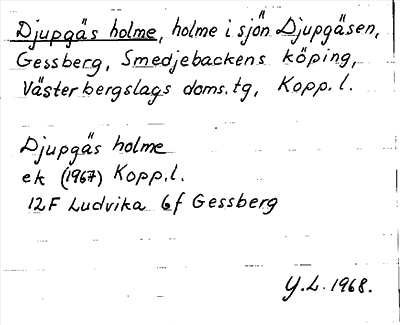 Djupgäs holme, holme i sjön Djupgäsen,
Gessberg, Smedjebackens köping,
Västerbergslags doms.tg, Kopp.l.
Djupgäs holme
ek (1967) Kopp.l.
12F Ludvika 6f Gessberg
Y.L. 1968.